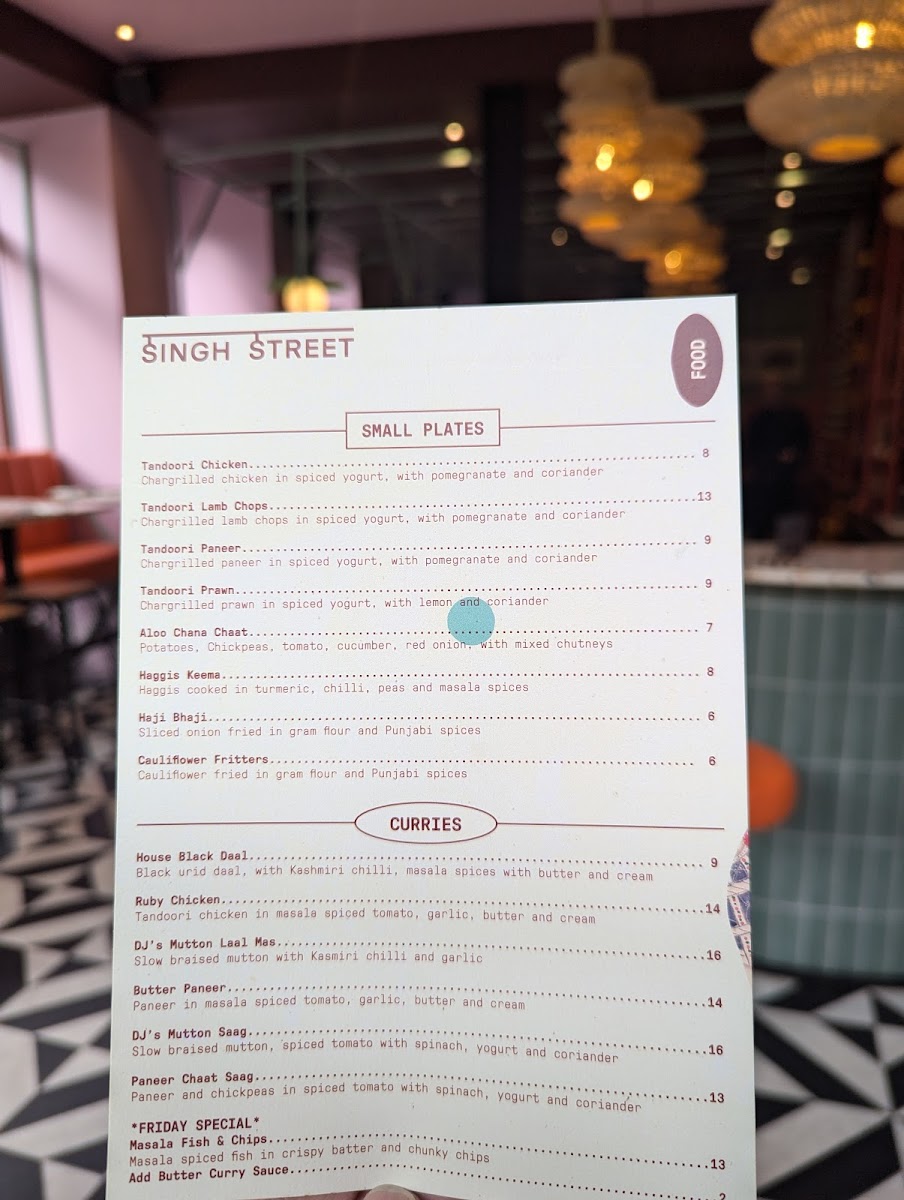 SINGH STREET
FOOD
SMALL PLATES
Tandoori Chicken 8
Chargrilled chicken in spiced yogurt, with pomegranate and coriander
Tandoori Lamb Chops 13
Chargrilled lamb chops in spiced yogurt, with pomegranate and coriander
Tandoori Paneer 9
Chargrilled paneer in spiced yogurt, with pomegranate and coriander
Tandoori Prawn 9
Chargrilled prawn in spiced yogurt, with lemon and coriander
Aloo Chana Chaat 7
Potatoes, Chickpeas, tomato, cucumber, red onion, with mixed chutneys
Haggis Keema 8
Haggis cooked in turmeric, chilli, peas and masala spices
Haji Bhaji 6
Sliced onion fried in gram flour and Punjabi spices
Cauliflower Fritters 6
Cauliflower fried in gram flour and Punjabi spices
CURRIES
House Black Daal 9
Black urid daal, with Kashmiri chilli, masala spices with butter and cream
Ruby Chicken 14
Tandoori chicken in masala spiced tomato, garlic, butter and cream
DJ's Mutton Laal Mas 16
Slow braised mutton with Kasmiri chilli and garlic
Butter Paneer 14
Paneer in masala spiced tomato, garlic, butter and cream
DJ's Mutton Saag 16
Slow braised mutton, spiced tomato with spinach, yogurt and coriander
Paneer Chaat Saag 13
Paneer and chickpeas in spiced tomato with spinach, yogurt and coriander
*FRIDAY SPECIAL*
Masala Fish & Chips 13
Masala spiced fish in crispy batter and chunky chips
Add Butter Curry Sauce 2